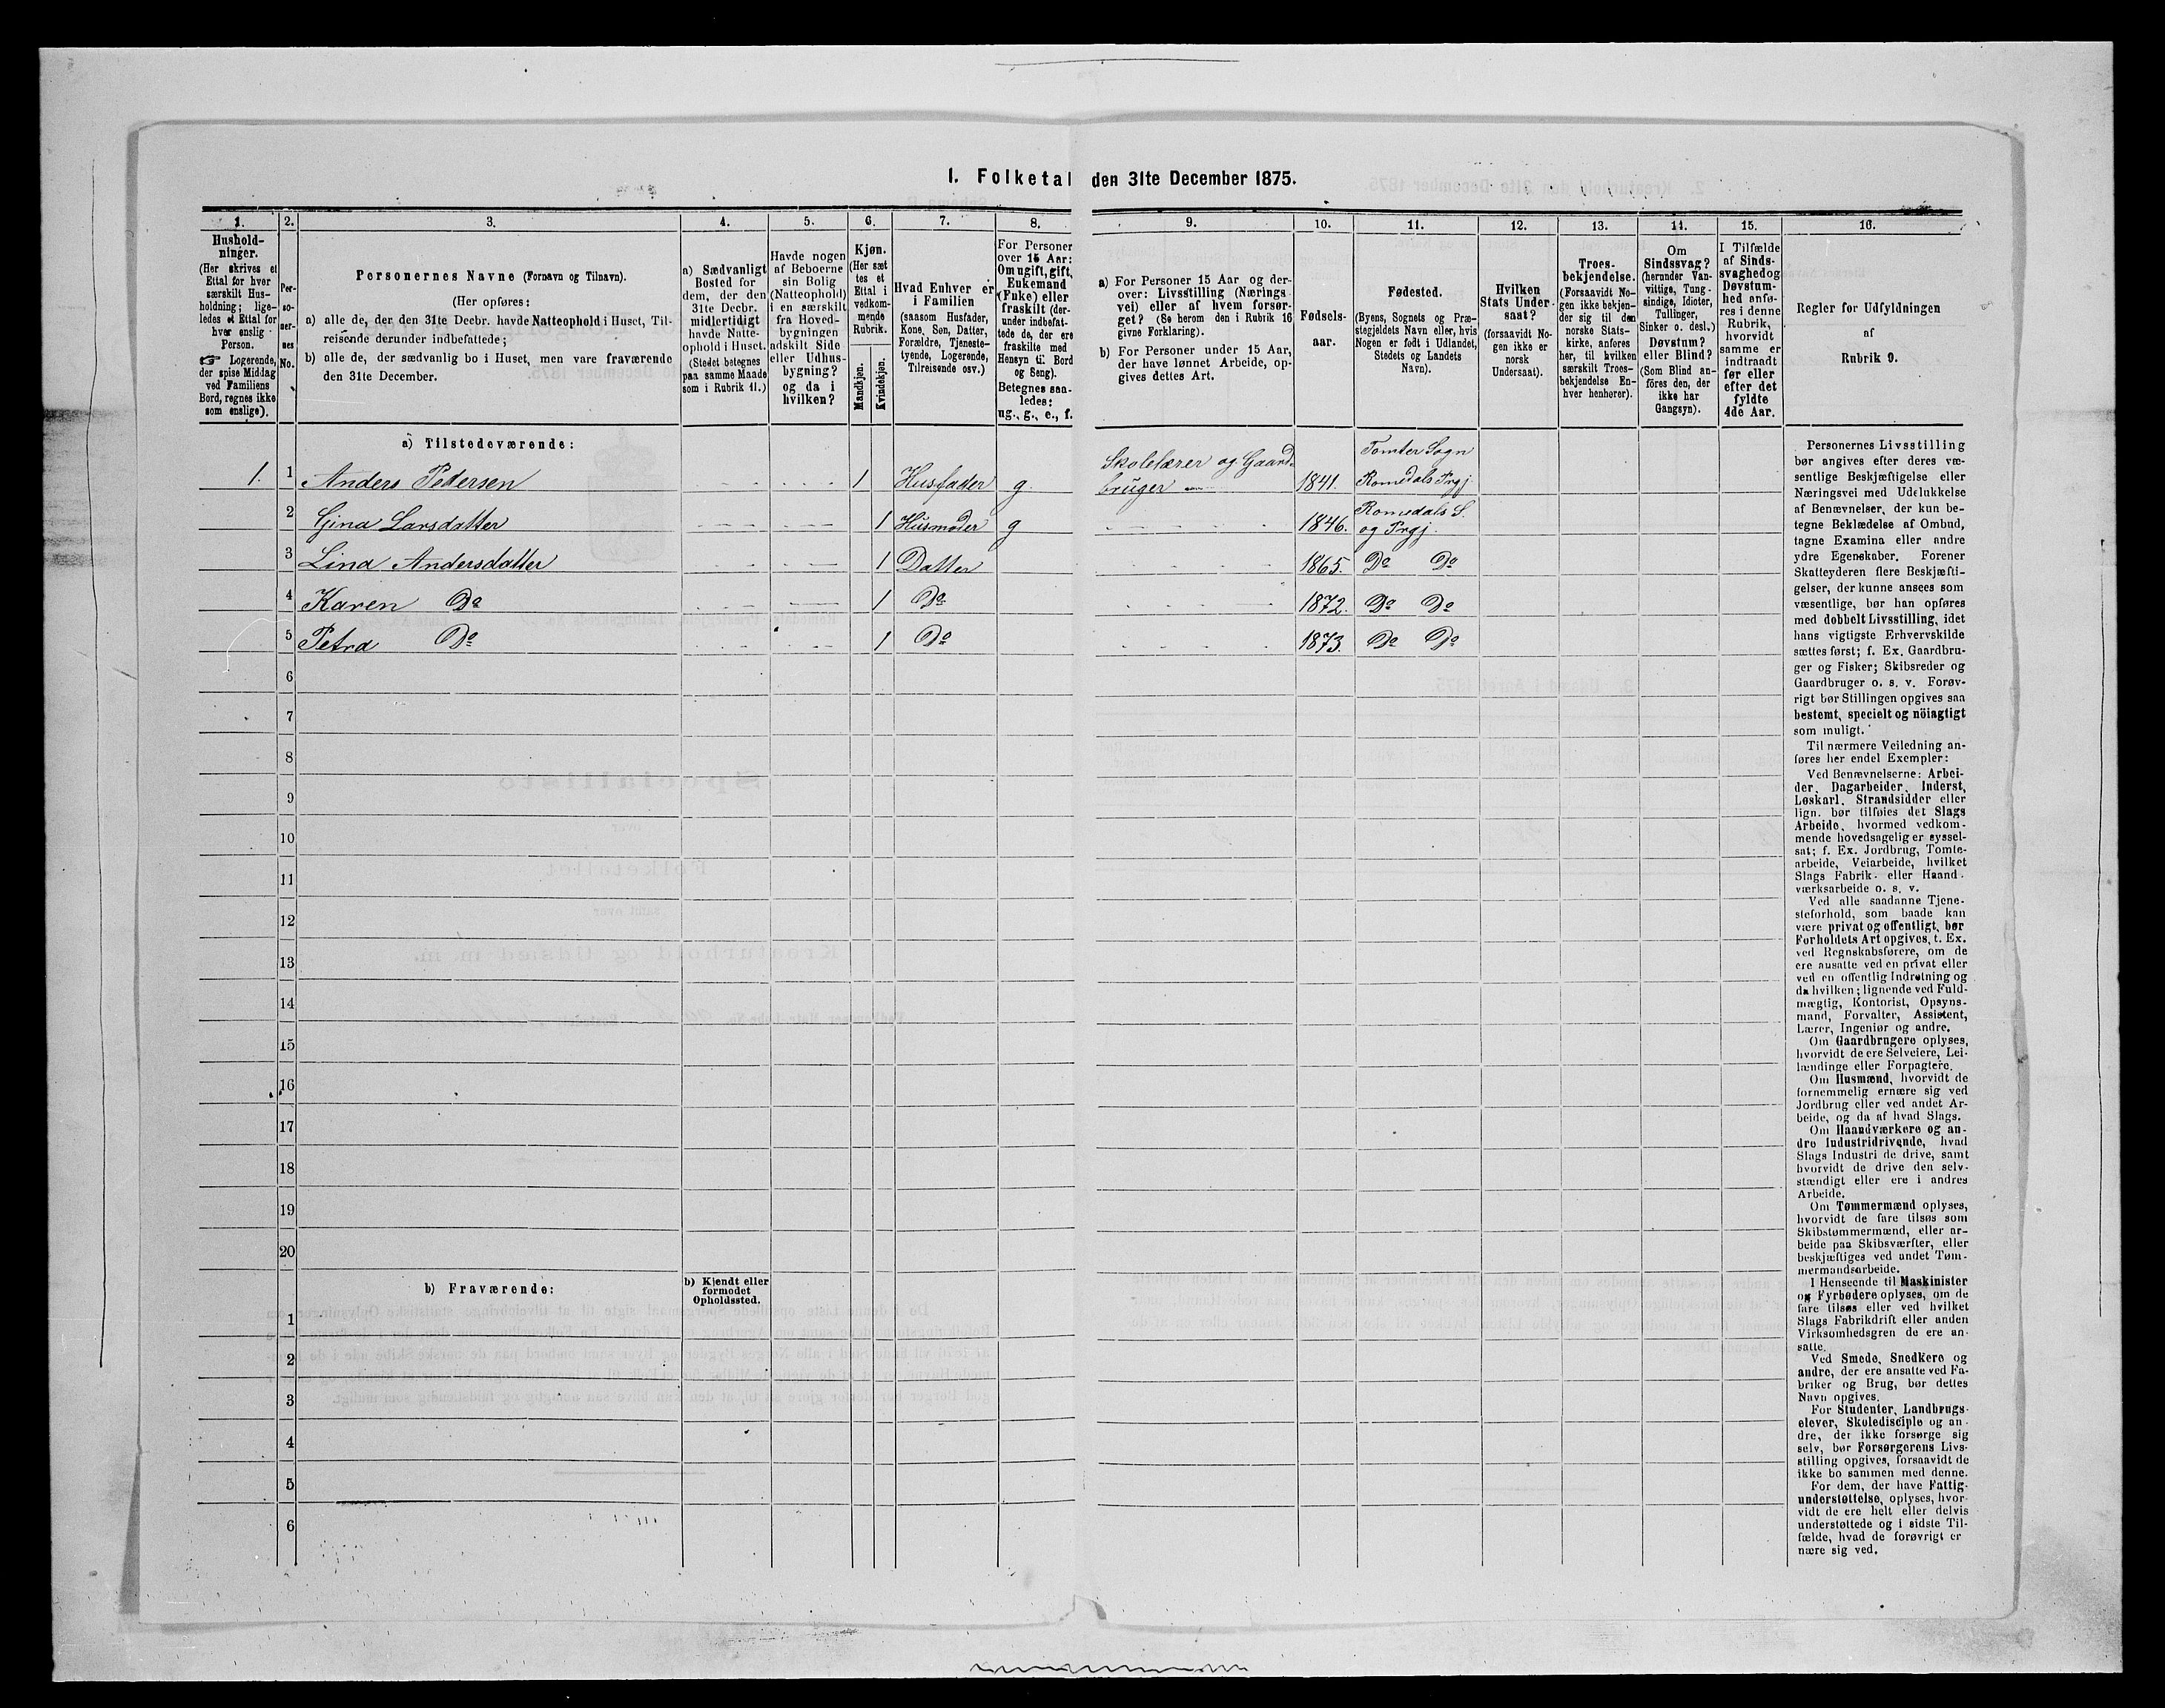 1. Folketal den 31te December 1875.
1. 2. 3. 4. 5. 6. 7. 8. 9. 10. 11. 12. 13. 14. 15. 16.
Hushold-
ninger.
(Her skrives et
Ettal for hver
særskilt Hus-
holdning; lige-
ledes et Ettal for
hver enslig
Person.
☞ Logerende,
der spise Middag
ved Familiens
Bord, regnes ikke
som enslige).
Per-
so-
ner-
nes
No.
Personernes Navne (Fornavn og Tilnavn).
(Her opføres:
a) alle de, der den 31te Decbr. havde Natteophold i Huset, Til-
reisende derunder indbefattede;
b) alle de, der sædvanlig bo i Huset, men vare fraværende
den 31te December.
a) Sædvanligt
Bosted for
dem, der den
31te Decbr.
midlertidigt
havde Natte-
ophold i Huset.
(Stedet betegnes
paa samme Maade
som i Rubrik 11.)
Havde nogen
af Beboerne
sin Bolig
(Natteophold)
i en særskilt
fra Hoved-
bygningen
adskilt Side
eller Udhus-
bygning?
og da i
hvilken?
Kjøn.
(Her sæt
tes et
Ettal i
vedkom-
mende
Rubrik.
Mandkjøn.
Kvindekjøn.
Hvad Enhver er
i Familien
(saasom Husfader,
Kone, Søn, Datter,
Forældre, Tjeneste-
tyende, Logerende,
Tilreisende osv.)
For Personer
over 15 Aar:
Om ugift, gift,
Enkemand
(Enke) eller
fraskilt (der-
under indbefat-
tede de, der ere
fraskilte med
Hensyn til Bord
og Seng).
Betegnes saa-
ledes:
ug., g., e., f.
a) For Personer 15 Aar og der-
over: Livsstilling (Nærings
vei) eller af hvem forsør-
get? (Se herom den i Rubrik 16
givne Forklaring).
b) For Personer under 15 Aar,
der have lønnet Arbeide, op-
gives dettes Art.
Fødsels-
aar.
Fødested.
(Byens, Sognets og Præ-
stegjeldets Navn eller, hvis
Nogen er født i Udlandet,
Stedets og Landets
Navn).
Hvilken
Stats Under-
saat?
(forsaavidt No-
gen ikke er
norsk
Undersaat).
Troes-
bekjendelse.
(Forsaavidt No-
gen ikke bekjen-
der sig til den
norske Stats-
kirke, anføres
her, til hvilken
særskilt Troes-
bekjendelse En-
hver henhører).
Om
Sindssvag?
(herunder Van-
vittige, Tung-
sindige, Idioter,
Tullinger,
Sinker o. desl.)
Døvstum?
eller Blind?
(Som Blind an-
føres den, der
ikke har
Gangsyn).
I Tilfælde
af Sinds-
svaghed og
Døvstum-
hed anfø-
res i denne
Rubrik,
hvorvidt
samme er
indtraadt
før eller
efter det
fyldte
4de Aar.
Regler for Udfyldningen
af
Rubrik 9.
a) Tilstedeværende:
1. 1 Anders Petersen 1 Husfader g. Skolelærer og Gaard-
bruger 1841. Tomter Sogn
Romedals Prgj.
2 Gina Larsdatter 1 Husmoder g 1846. Romedals S.
og Prgj.
3 Lina Andersdatter 1 Datter 1865. Do Do
4 Karen Do 1 Do 1872. Do Do
5 Petra Do 1 Do 1873. Do Do
6
7
8
9
10
11
12
13
14
15
16
17
18
19
20
b) Fraværende:
b) Kjendt eller
formodet
Opholdssted.
1
2
3
4
5
6
Personernes Livsstilling
bør angives efter deres væ-
sentlige Beskjæftigelse eller
Næringsvei med Udelukkelse
af Benævnelser, der kun be-
tegne Beklædelse af Ombud,
tagne Examina eller andre
ydre Egenskaber. Forener
Skatteyderen flere Beskjæfti-
gelser, der kunne ansees som
væsentlige, bør han opføres
med dobbelt Livsstilling, idet
hans vigtigste Erhvervskilde
sættes først; f. Ex. Gaardbru-
ger og Fisker; Skibsreder og
Gaardbruger o. s. v. Forøv-
rigt bør Stillingen opgives saa
bestemt, specielt og nöiagtigt
som muligt.
Til nærmere Veiledning an-
føres her endel Exempler:
Ved Benævnelserne: Arbei-
der, Dagarbeider, Inderst,
Løskarl, Strandsidder eller
lign. bør tilføies det Slags
Arbeide, hvormed vedkom-
mende hovedsagelig er syssel-
sat; f. Ex. Jordbrug, Tomte-
arbeide, Veiarbeide, hvilket
Slags Fabrik- eller Haand-
værksarbeide o. s. v.
Ved alle saadanne Tjene-
steforhold, som baade kan
være privat og offentligt, bør
Forholdets Art opgives, t. Ex.
ved Regnskabsførere, om de
ere ansatte ved en privat eller
ved en offentlig Indretning og
da hvilken; lignende ved Fuld-
mægtig, Kontorist, Opsyns-
mand, Forvalter, Assistent,
Lærer, Ingeniør og andre.
Om Gaardbrugere oplyses,
hvorvidt de ere Selveiere, Lei-
lændinge eller Forpagtere.
Om Husmænd, hvorvidt de
fornemmelig ernære sig ved
Jordbrug eller ved andet Ar-
beide, og da af hvad Slags.
Om Haandværkere og an-
dre Industridrivende, hvad
Slags Industri de drive, samt
hvorvidt de drive den selv-
stændigt eller ere i andres
Arbeide.
Om Tømmermænd oplyses,
hvorvidt de fare tilsøs som
Skibstømmermænd, eller ar-
beide paa Skibsværfter, eller
beskjæftiges ved andet Tøm-
mermandsarbeide.
I Henseende til Maskinister
og Fyrbødere oplyses, om de
fare tilsøs eller ved hvilket
Slags Fabrikdrift eller anden
Virksomhedsgren de ere an-
satte.
Ved Smede, Snedkere og
andre, der ere ansatte ved Fa-
briker og Brug, bør dettes
Navn opgives.
For Studenter, Landbrugs-
elever, Skoledisciple og an-
dre, der ikke forsørge sig
selv, bør Forsørgerens Livs-
stilling opgives, forsaavidt de
ikke bo sammen med denne.
For dem, der have Fattig-
understøttelse, oplyses, hvor-
vidt de ere helt eller delvis
understøttede og i sidste Til-
fælde, hvad de forøvrigt er
nære sig ved.